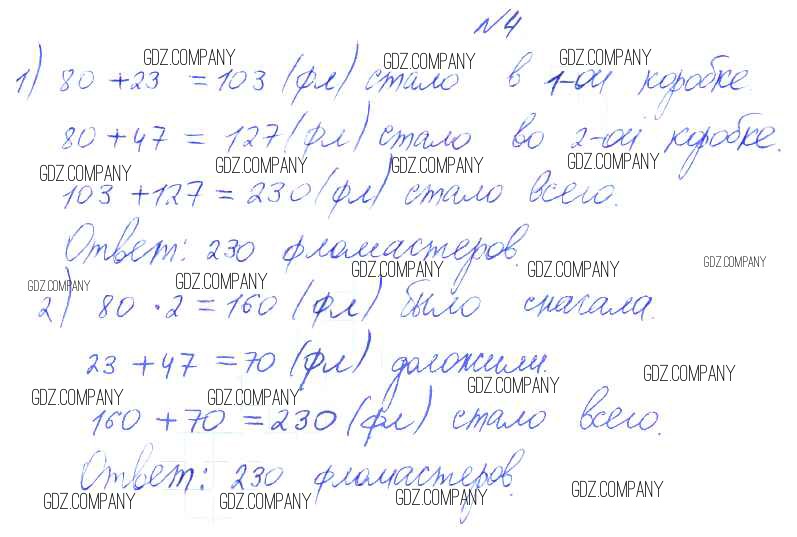 №4
GDZ.COMPANY GDZ.COMPANY GDZ.COMPANY
1) 80 + 23 = 103 (фл) стало в 1-ой коробке.
80 + 47 = 127 (фл) стало во 2-ой коробке.
GDZ.COMPANY GDZ.COMPANY GDZ.COMPANY GDZ.COMPANY
103 + 127 = 230 (фл) стало всего.
Ответ: 230 фломастеров.
GDZ.COMPANY GDZ.COMPANY GDZ.COMPANY GDZ.COMPANY GDZ.COMPANY
2) 80 · 2 = 160 (фл) было сначала.
23 + 47 = 70 (фл) доложили.
GDZ.COMPANY GDZ.COMPANY GDZ.COMPANY GDZ.COMPANY
160 + 70 = 230 (фл) стало всего.
Ответ: 230 фломастеров.
GDZ.COMPANY GDZ.COMPANY GDZ.COMPANY GDZ.COMPANY